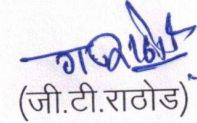 (जी.टी.राठोड)